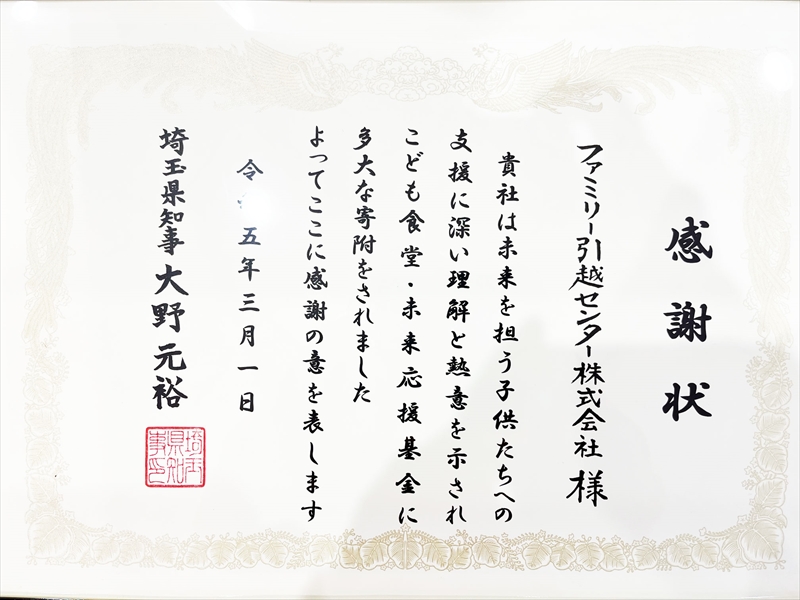 感謝状
ファミリー引越センター株式会社 様
貴社は未来を担う子供たちへの
支援に深い理解と熱意を示され
こども食堂・未来応援基金に
多大な寄附をされました
よってここに感謝の意を表します
令和五年三月一日
埼玉県知事 大野元裕
埼玉県知事印